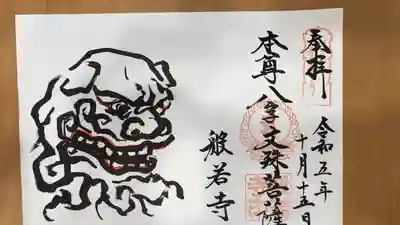 奉拝
令和五年
十月十五日
本尊八字文殊菩薩
般若寺